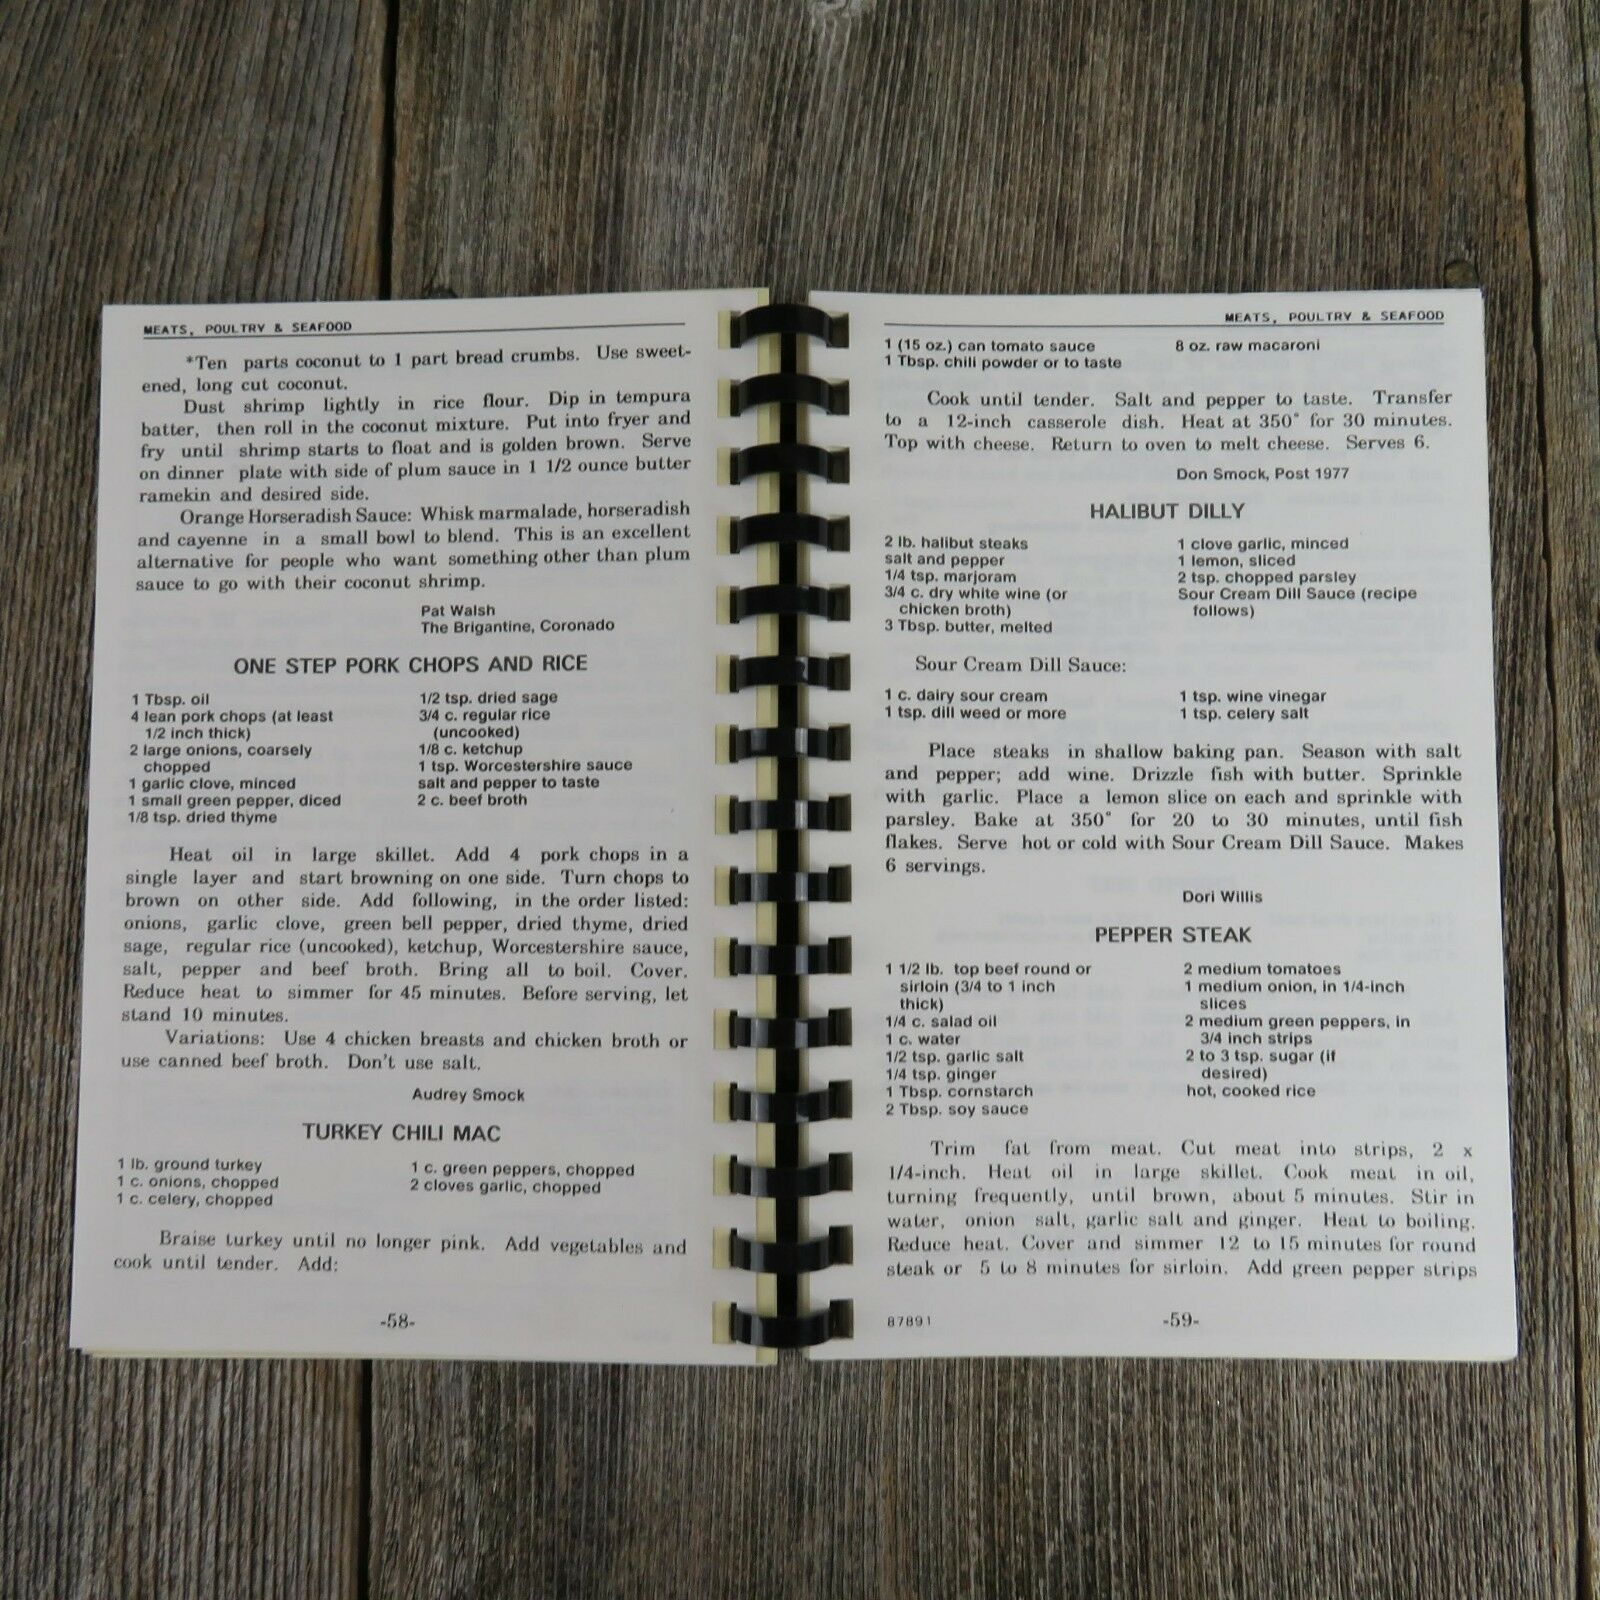 MEATS, POULTRY & SEAFOOD
*Ten parts coconut to 1 part bread crumbs. Use sweet-
ened, long cut coconut.
Dust shrimp lightly in rice flour. Dip in tempura
batter, then roll in the coconut mixture. Put into fryer and
fry until shrimp starts to float and is golden brown. Serve
on dinner plate with side of plum sauce in 1 1/2 ounce butter
ramekin and desired side.
Orange Horseradish Sauce: Whisk marmalade, horseradish
and cayenne in a small bowl to blend. This is an excellent
alternative for people who want something other than plum
sauce to go with their coconut shrimp.
Pat Walsh
The Brigantine, Coronado
ONE STEP PORK CHOPS AND RICE
1 Tbsp. oil
4 lean pork chops (at least
1/2 inch thick)
2 large onions, coarsely
chopped
1 garlic clove, minced
1 small green pepper, diced
1/8 tsp. dried thyme
1/2 tsp. dried sage
3/4 c. regular rice
(uncooked)
1/8 c. ketchup
1 tsp. Worcestershire sauce
salt and pepper to taste
2 c. beef broth
Heat oil in large skillet. Add 4 pork chops in a
single layer and start browning on one side. Turn chops to
brown on other side. Add following, in the order listed:
onions, garlic clove, green bell pepper, dried thyme, dried
sage, regular rice (uncooked), ketchup, Worcestershire sauce,
salt, pepper and beef broth. Bring all to boil. Cover.
Reduce heat to simmer for 45 minutes. Before serving, let
stand 10 minutes.
Variations: Use 4 chicken breasts and chicken broth or
use canned beef broth. Don't use salt.
Audrey Smock
TURKEY CHILI MAC
1 lb. ground turkey
1 c. onions, chopped
1 c. celery, chopped
1 c. green peppers, chopped
2 cloves garlic, chopped
Braise turkey until no longer pink. Add vegetables and
cook until tender. Add:
-58-
MEATS, POULTRY & SEAFOOD
1 (15 oz.) can tomato sauce
1 Tbsp. chili powder or to taste
8 oz. raw macaroni
Cook until tender. Salt and pepper to taste. Transfer
to a 12-inch casserole dish. Heat at 350° for 30 minutes.
Top with cheese. Return to oven to melt cheese. Serves 6.
Don Smock, Post 1977
HALIBUT DILLY
2 lb. halibut steaks
salt and pepper
1/4 tsp. marjoram
3/4 c. dry white wine (or
chicken broth)
3 Tbsp. butter, melted
1 clove garlic, minced
1 lemon, sliced
2 tsp. chopped parsley
Sour Cream Dill Sauce (recipe
follows)
Sour Cream Dill Sauce:
1 c. dairy sour cream
1 tsp. dill weed or more
1 tsp. wine vinegar
1 tsp. celery salt
Place steaks in shallow baking pan. Season with salt
and pepper; add wine. Drizzle fish with butter. Sprinkle
with garlic. Place a lemon slice on each and sprinkle with
parsley. Bake at 350° for 20 to 30 minutes, until fish
flakes. Serve hot or cold with Sour Cream Dill Sauce. Makes
6 servings.
Dori Willis
PEPPER STEAK
1 1/2 lb. top beef round or
sirloin (3/4 to 1 inch
thick)
1/4 c. salad oil
1 c. water
1/2 tsp. garlic salt
1/4 tsp. ginger
1 Tbsp. cornstarch
2 Tbsp. soy sauce
2 medium tomatoes
1 medium onion, in 1/4-inch
slices
2 medium green peppers, in
3/4 inch strips
2 to 3 tsp. sugar (if
desired)
hot, cooked rice
Trim fat from meat. Cut meat into strips, 2 x
1/4-inch. Heat oil in large skillet. Cook meat in oil,
turning frequently, until brown, about 5 minutes. Stir in
water, onion salt, garlic salt and ginger. Heat to boiling.
Reduce heat. Cover and simmer 12 to 15 minutes for round
steak or 5 to 8 minutes for sirloin. Add green pepper strips
87891
-59-